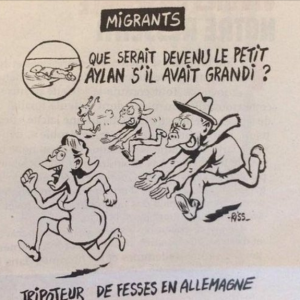 MiGRANTS
QUE SERAIT DEVENU LE PETIT
AYLAN S'IL AVAIT GRANDI ?
RiSS
TRiPOTEUR DE FESSES EN ALLEMAGNE